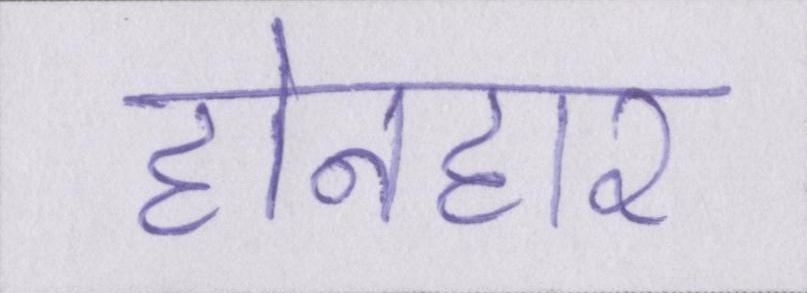 होनहार